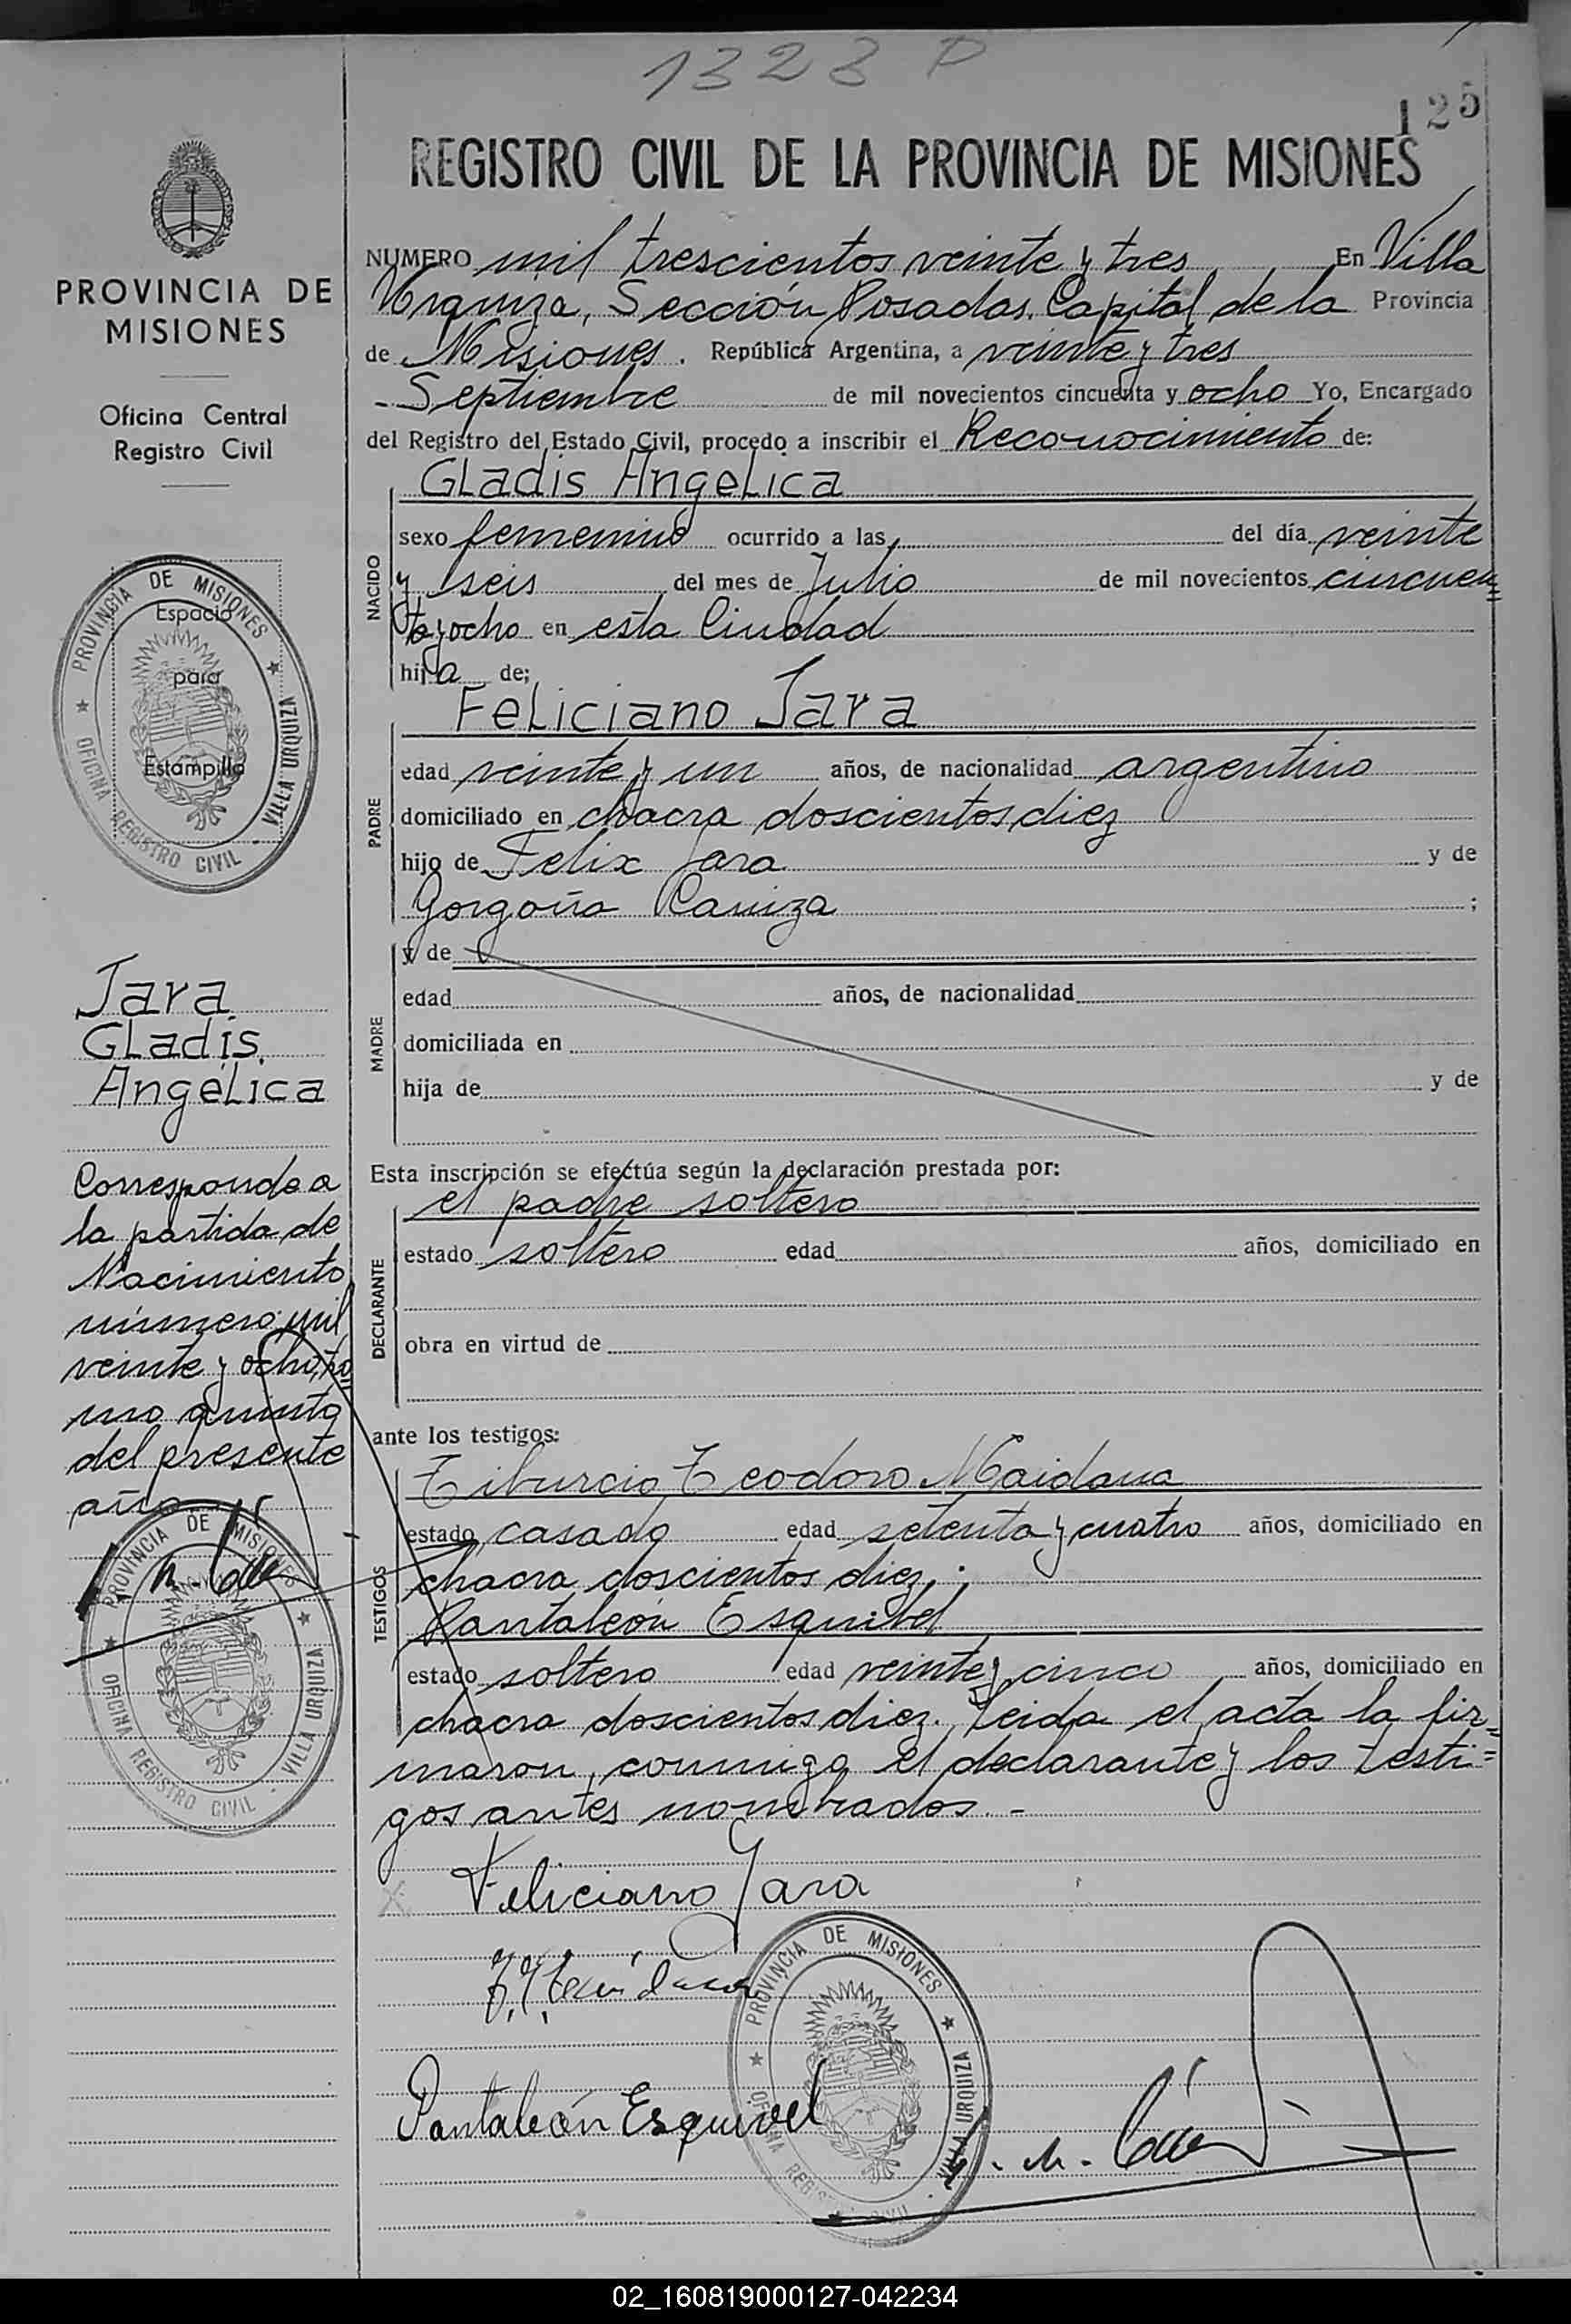 1323 P
125
REGISTRO CIVIL DE LA PROVINCIA DE MISIONES
NUMERO mil trescientos veinte y tres En Villa
Urquiza, Sección Posadas, Capital de la Provincia
de Misiones. República Argentina, a veinte y tres
- Septiembre de mil novecientos cincuenta y ocho Yo, Encargado
del Registro del Estado Civil, procedo a inscribir el Reconocimiento de:
NACIDO
Gladis Angelica
sexo femenino ocurrido a las del día veinte
y seis del mes de Julio de mil novecientos cincuen=
ta y ocho en esta Ciudad
hija de;
PADRE
Feliciano Jara
edad veinte y un años, de nacionalidad argentino
domiciliado en chacra doscientos diez
hijo de Felix Jara y de
;
MADRE
y de
edad años, de nacionalidad
domiciliada en
hija de y de
Esta inscripción se efectúa según la declaración prestada por:
DECLARANTE
el padre soltero
estado soltero edad años, domiciliado en
obra en virtud de
ante los testigos:
TESTIGOS
Tiburcio Teodoro Maidana
estado casado edad setenta y cuatro años, domiciliado en
chacra doscientos diez;
Pantaleón Esquibel
estado soltero edad veinte y cinco años, domiciliado en
chacra doscientos diez. Leida el acta la fir=
maron, conmigo el declarante y los testi=
gos antes nombrados. -
Feliciano Jara
T. T. Maidana
Pantaleón Esquivel
PROVINCIA DE MISIONES
OFICINA REGISTRO CIVIL
VILLA URQUIZA
PROVINCIA DE
MISIONES
Oficina Central
Registro Civil
Espacio
para
Estampilla
PROVINCIA DE MISIONES
OFICINA REGISTRO CIVIL
VILLA URQUIZA
Jara
Gladis
Angélica
Corresponde a
la partida de
Nacimiento
número mil
veinte y ocho, to
mo quinto
del presente
año
PROVINCIA DE MISIONES
OFICINA REGISTRO CIVIL
VILLA URQUIZA
02_160819000127-042234